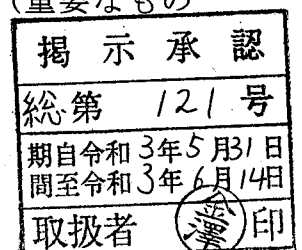 (重要なもの
掲示承認
総第 121 号
期自令和3年5月31日
間至令和3年6月14日
取扱者 金澤 印